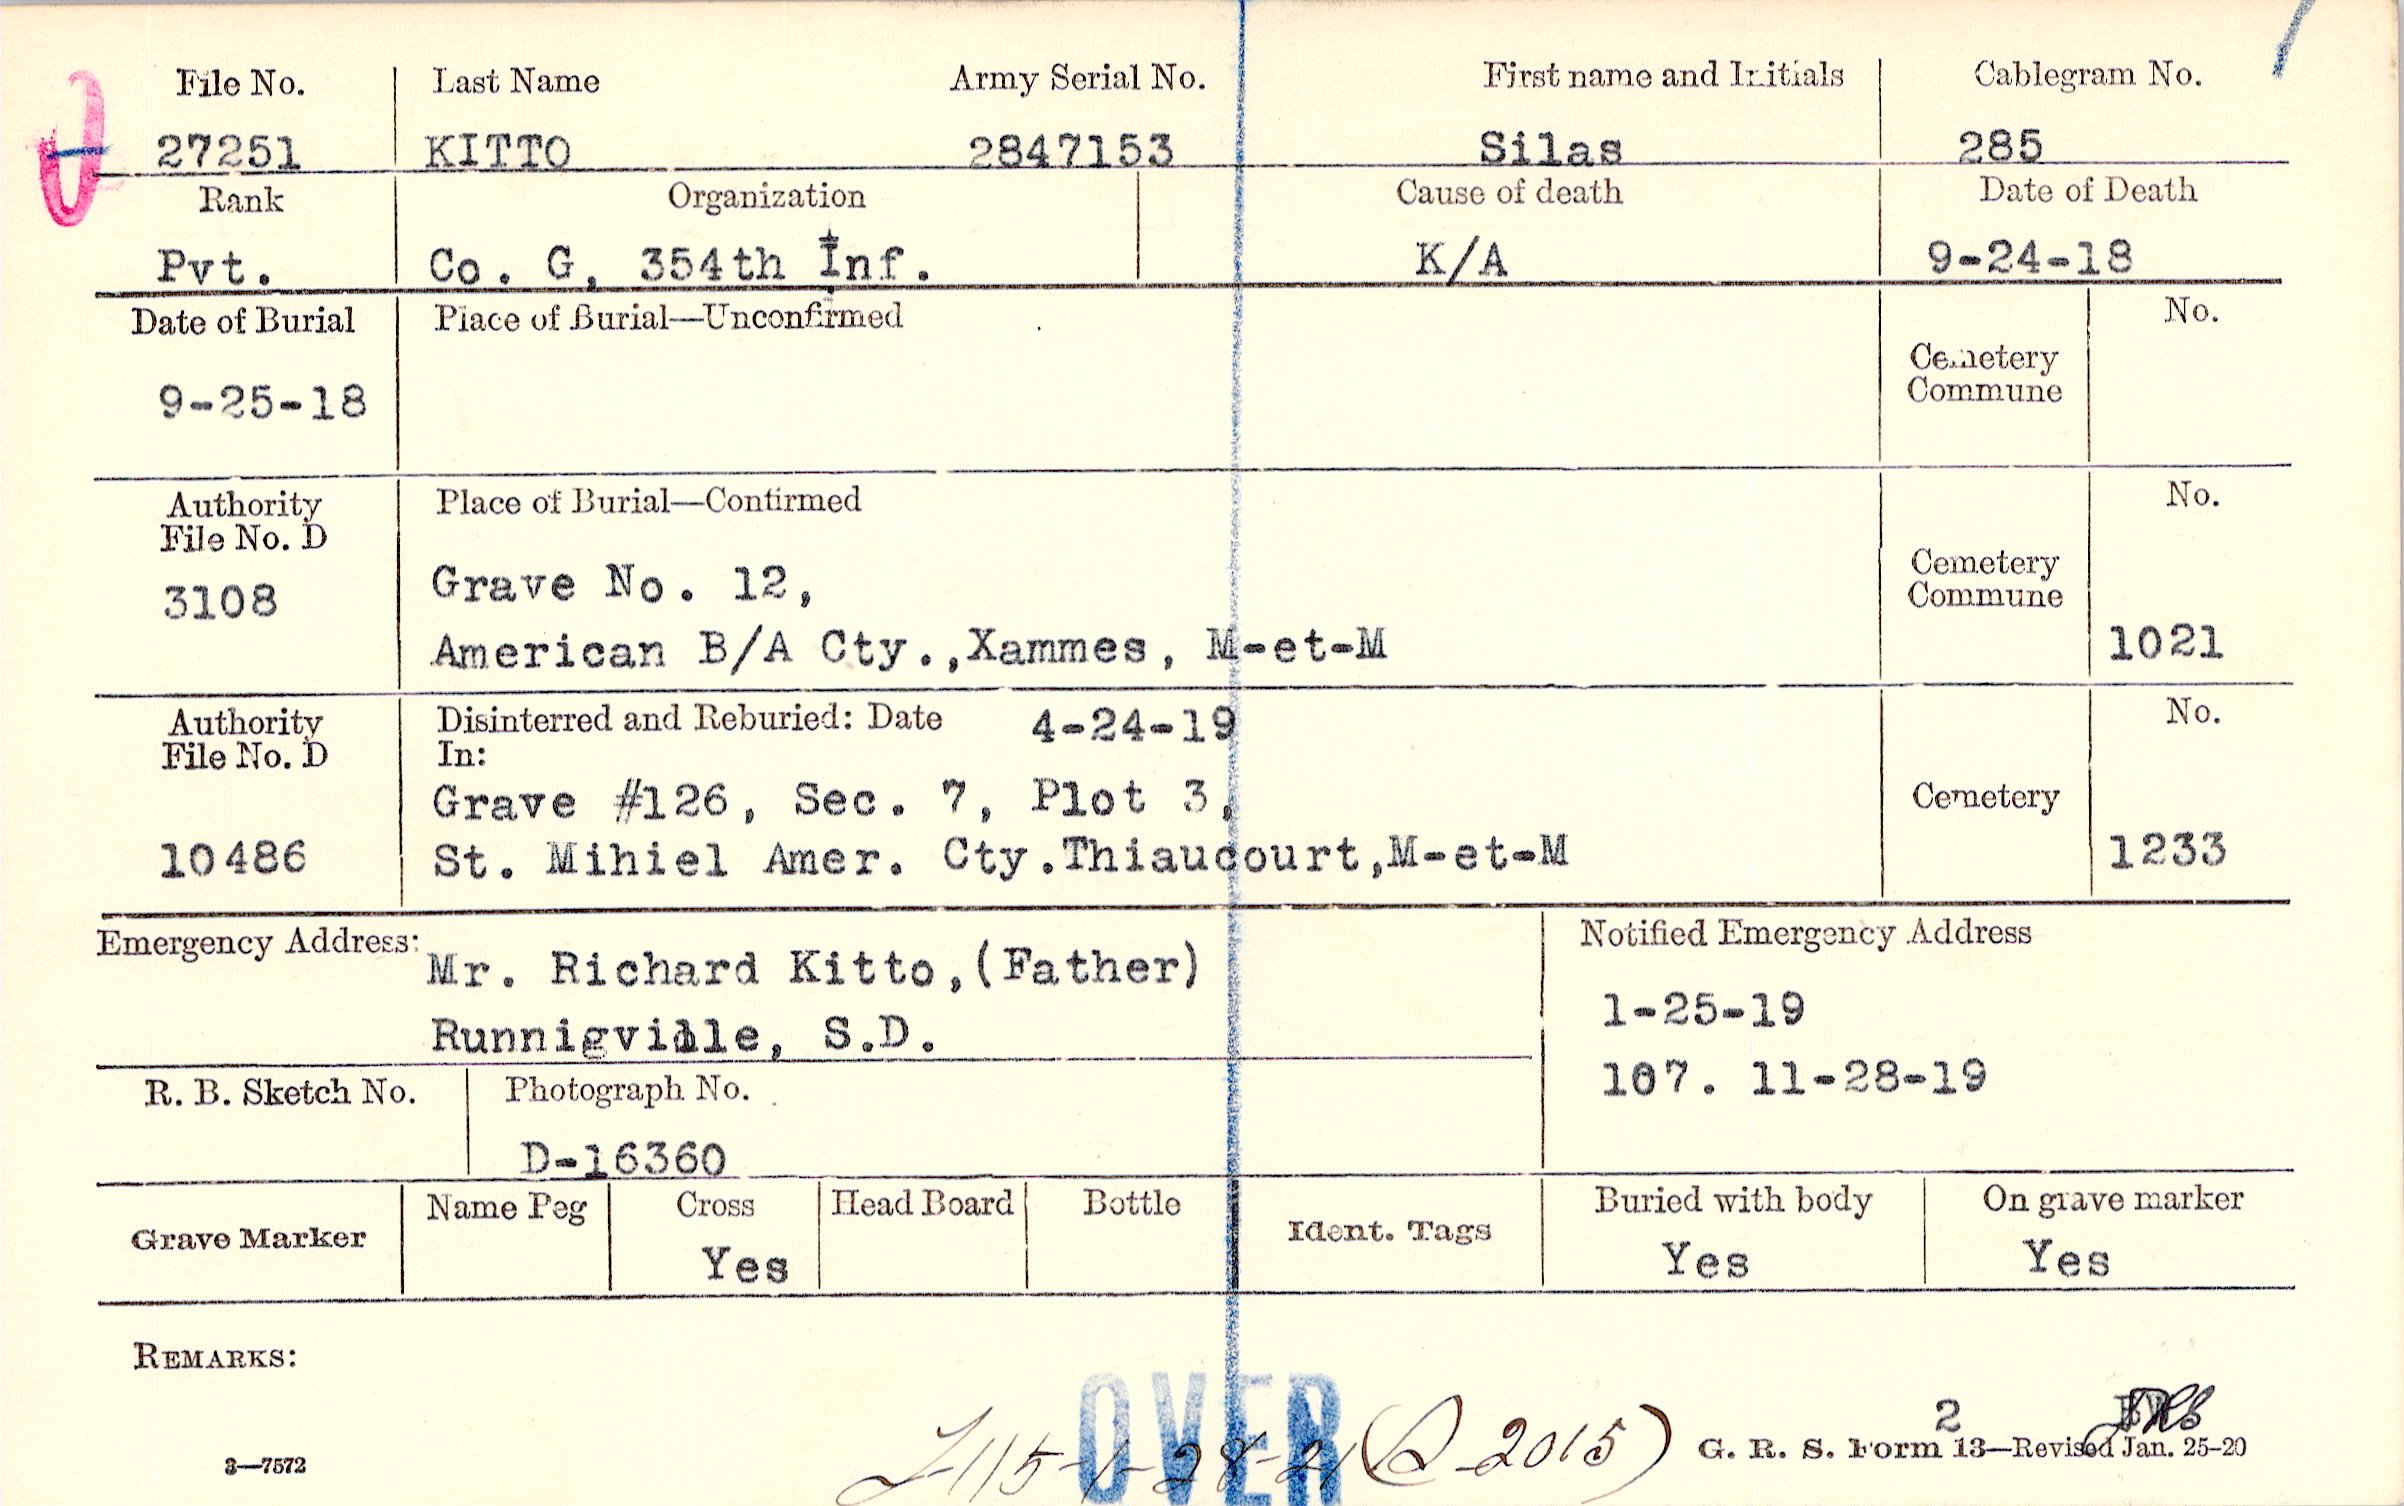 File No. Last Name Army Serial No. First name and Initials Cablegram No.
27251 KITTO 2847153 Silas 285
Rank Organization Cause of death Date of Death
Pvt. Co. G, 354th Inf. K/A 9-24-18
Date of Burial Place of Burial—Unconfirmed No.
Cemetery
Commune
9-25-18
Authority Place of Burial—Confirmed No.
File No. D
Cemetery
Commune
3108 Grave No. 12,
American B/A Cty.,Xammes, M-et-M 1021
Authority Disinterred and Reburied: Date 4-24-19 No.
File No. D In:
Grave #126, Sec. 7, Plot 3, Cemetery
10486 St. Mihiel Amer. Cty.Thiaucourt,M-et-M 1233
Emergency Address: Mr. Richard Kitto,(Father) Notified Emergency Address
1-25-19
Runnigville, S.D.
107. 11-28-19
R. B. Sketch No. Photograph No.
D-16360
Grave Marker Name Peg Cross Head Board Bottle Ident. Tags Buried with body On grave marker
Yes Yes Yes
REMARKS:
OVER
2
115-1-28-21 (2015)
G. R. S. Form 13—Revised Jan. 25-20
3—7572